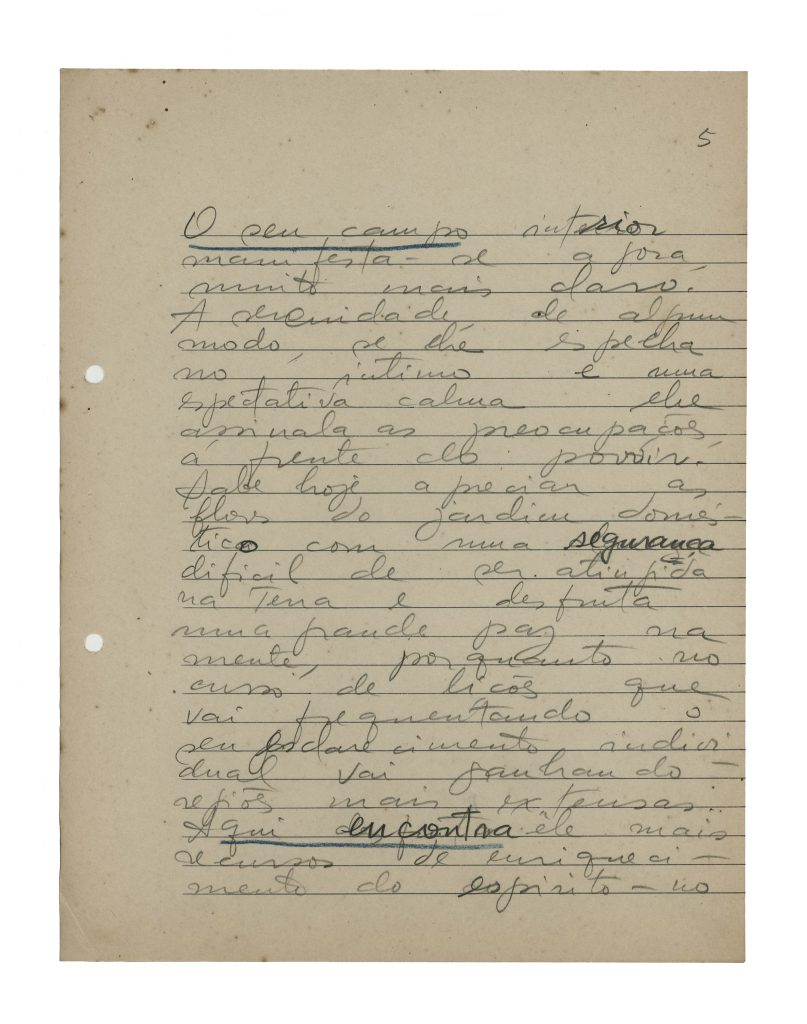 5
O seu campo interior
manifesta-se agora
muito mais claro.
A serenidade de algum
modo, se lhe espelha
no íntimo e uma
espectativa calma lhe
assinala as preocupações
á frente do porvir.
Sabe hoje apreciar as
flores do jardim domés-
tico com uma segurança
dificil de ser atingida
na Terra e desfruta
uma grande paz na
mente, porquanto no
curso de lições que
vai frequentando o
seu esclarecimento indivi
dual vai ganhando -
regiões mais extensas..
Aqui encontra êle mais
recursos de enriqueci-
mento do espirito - no